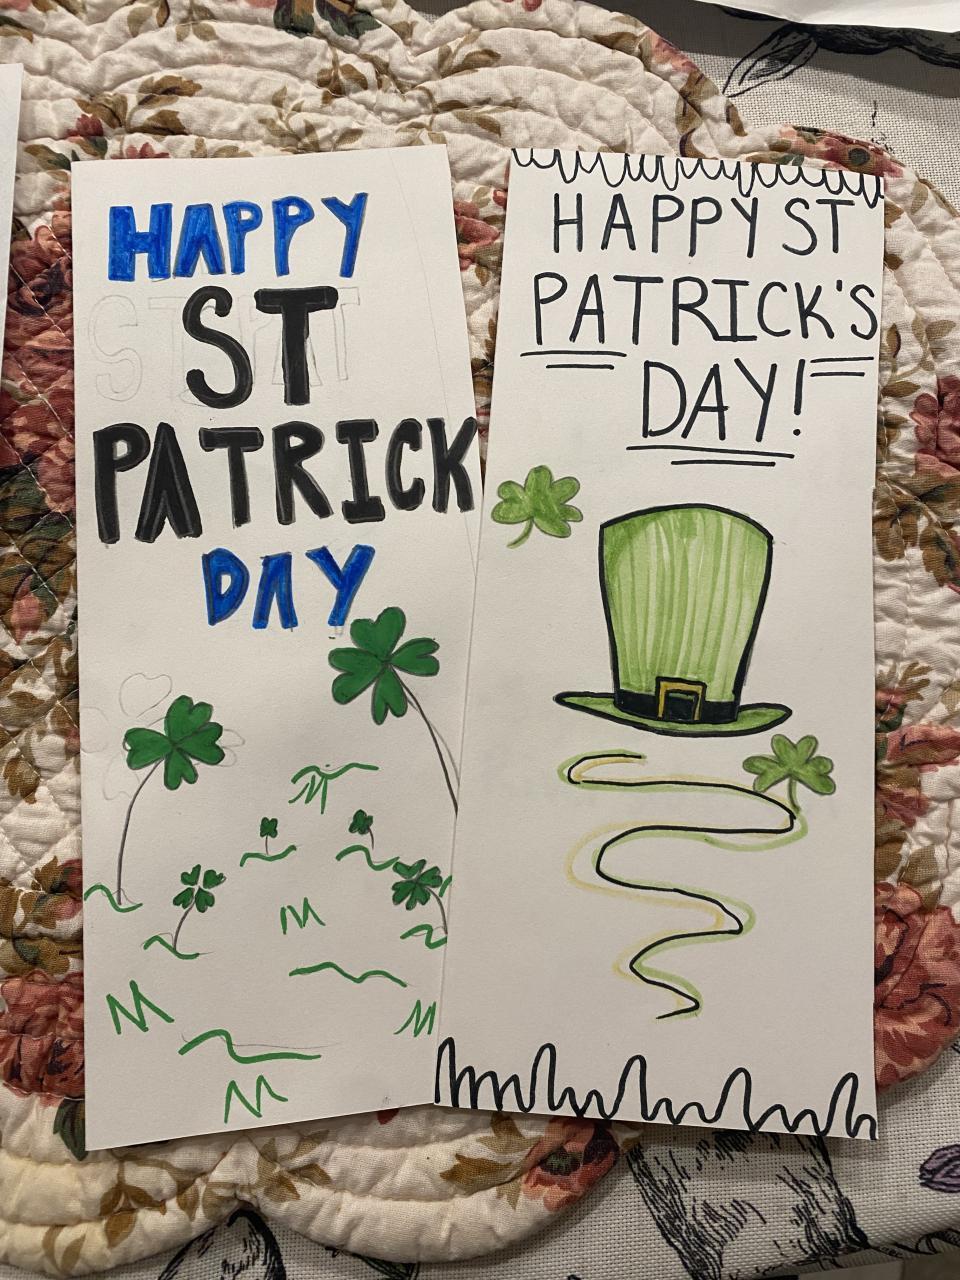 HAPPY
ST
PATRICK
DAY
HAPPY ST
PATRICK'S
DAY!